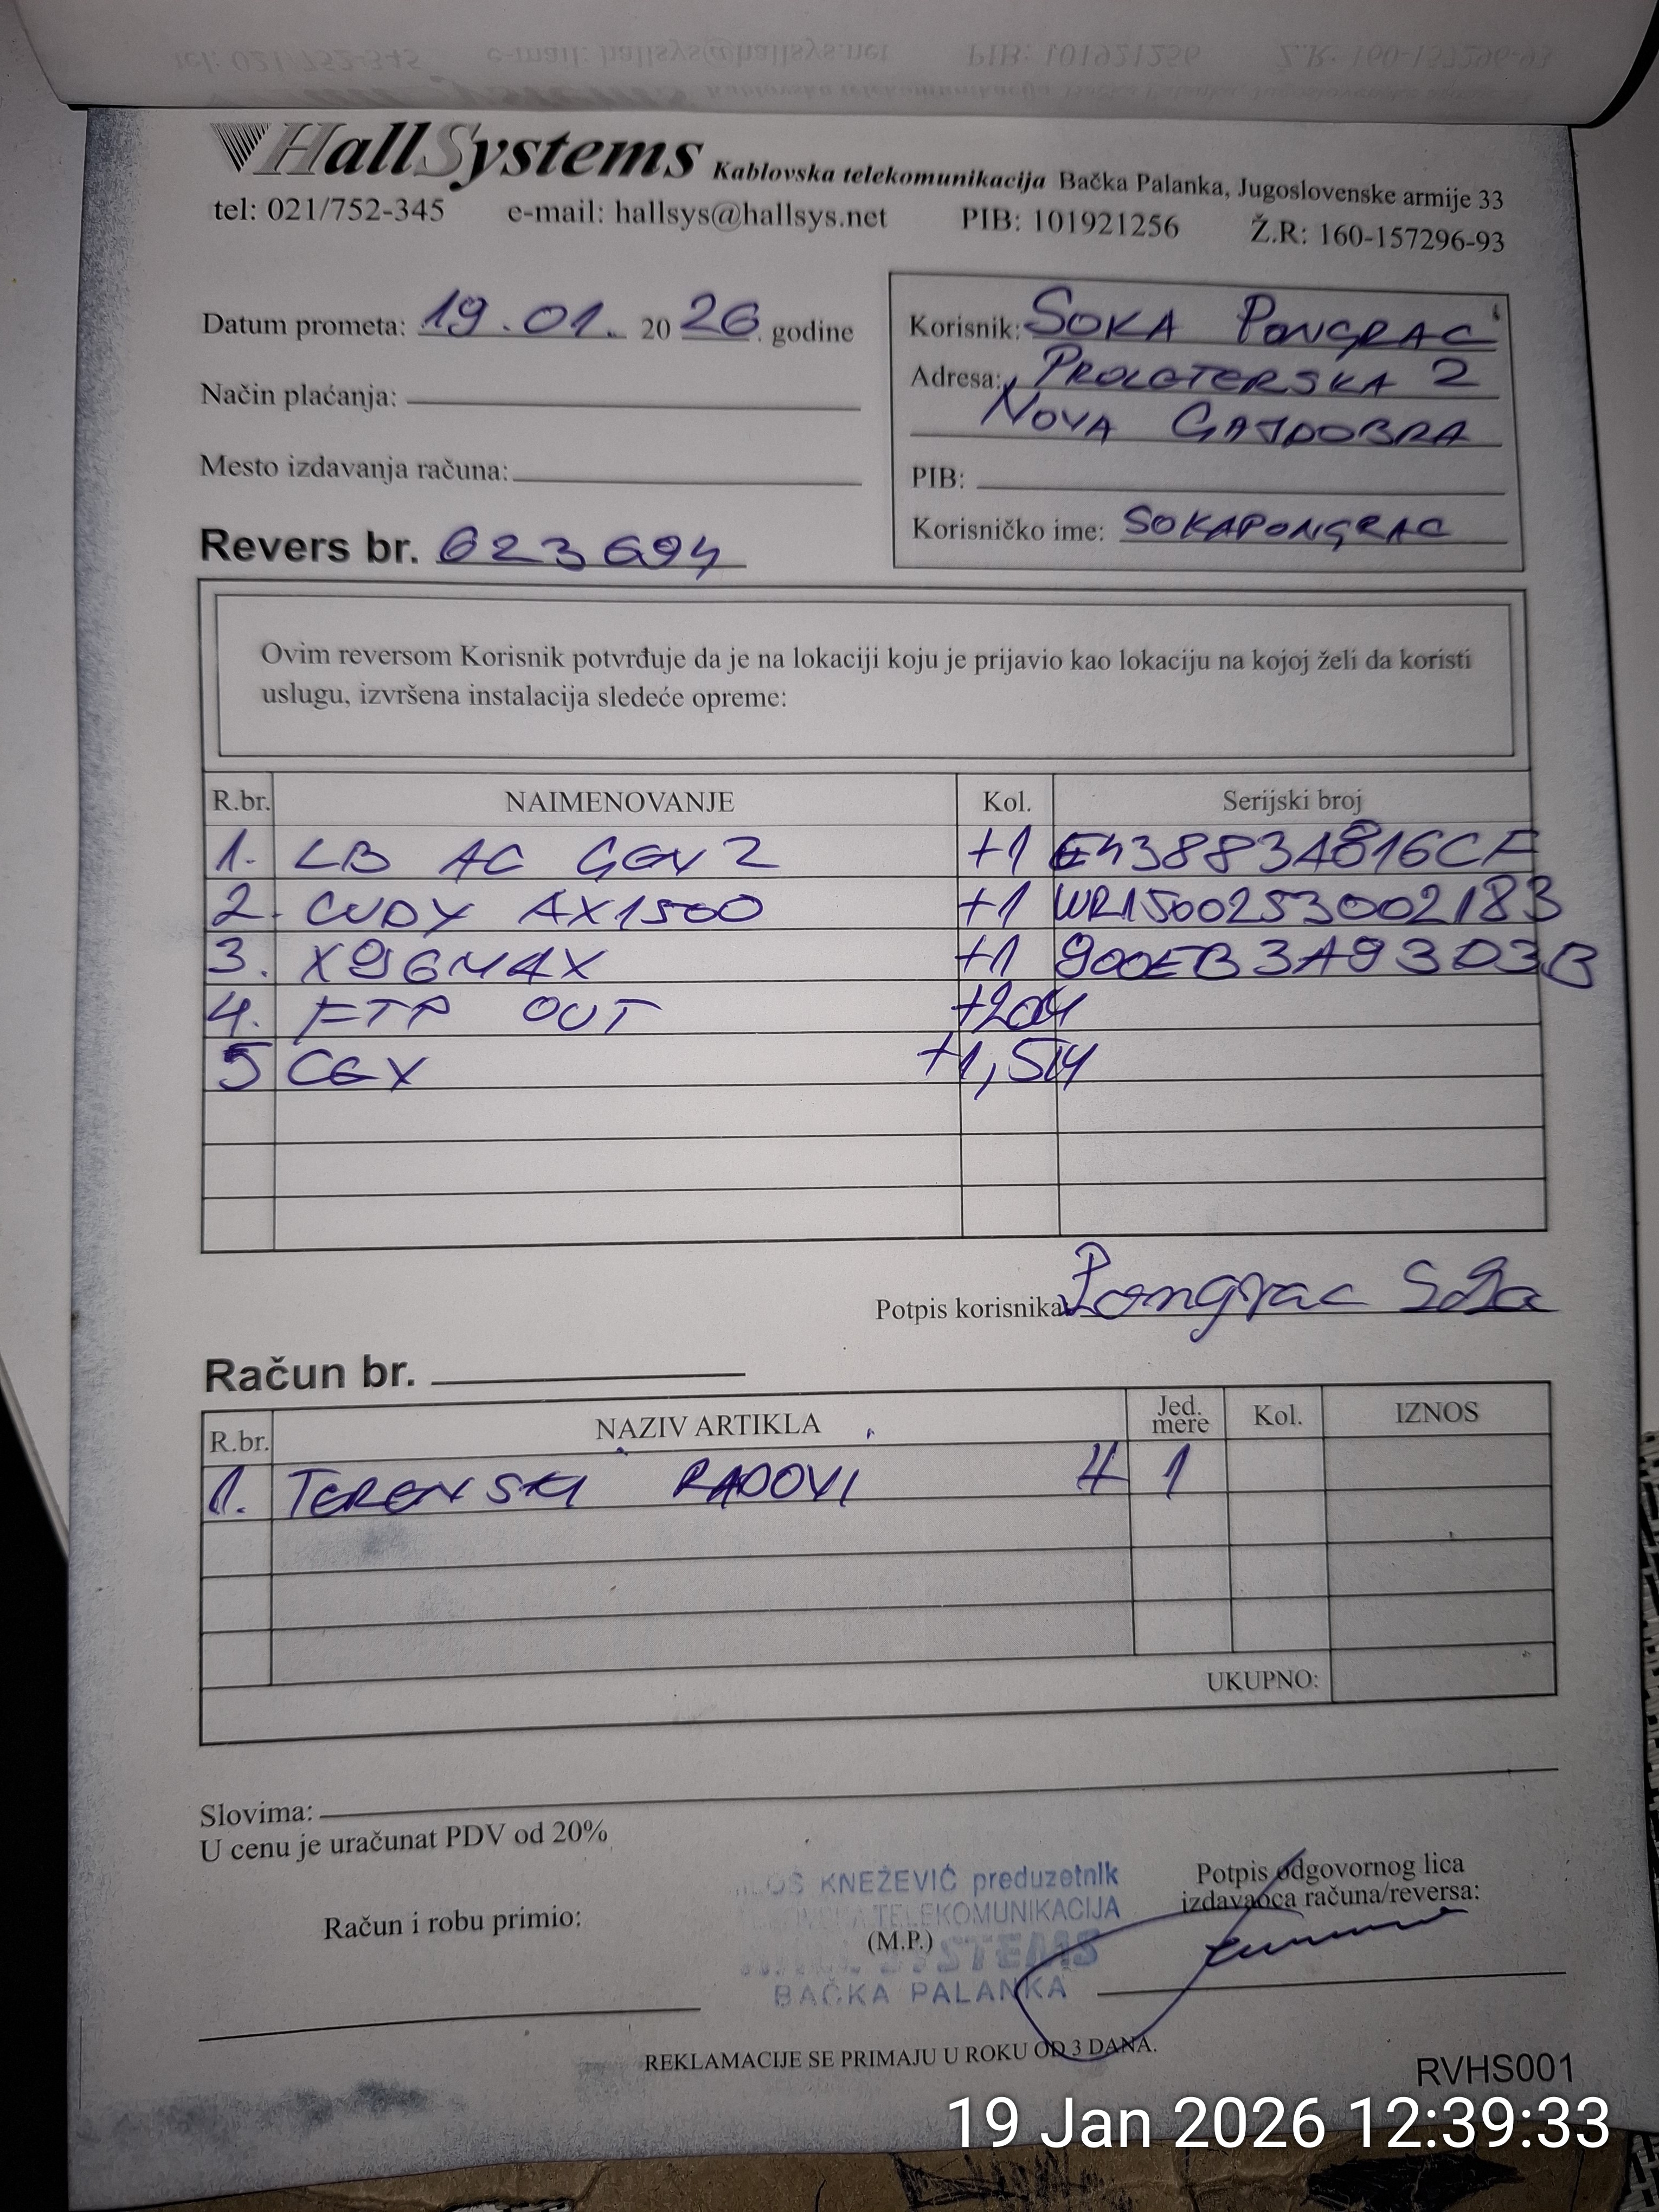 HallSystems Kablovska telekomunikacija Bačka Palanka, Jugoslovenske armije 33
tel: 021/752-345 e-mail: hallsys@hallsys.net PIB: 101921256 Ž.R: 160-157296-93
Datum prometa: 19.01. 2026. godine
Način plaćanja:
Mesto izdavanja računa:
Revers br. 623694
Korisnik: SOKA PONGRAC
Adresa: PROLETERSKA 2
NOVA GAJDOBRA
PIB:
Korisničko ime: SOKAPONGRAC
Ovim reversom Korisnik potvrđuje da je na lokaciji koju je prijavio kao lokaciju na kojoj želi da koristi
uslugu, izvršena instalacija sledeće opreme:
R.br. NAIMENOVANJE Kol. Serijski broj
1. LB AC GEN 2 +1 E43883A816CF
2. CUDY AX1500 +1 WR1500253002183
3. X96MAX +1 900EB3A93D3B
4. FTP OUT +20M
5 CEV +1,5M
Potpis korisnika: Pongrac Soka
Račun br.
R.br. NAZIV ARTIKLA Jed. mere Kol. IZNOS
1. TERENSKI RADOVI H 1
UKUPNO:
Slovima:
U cenu je uračunat PDV od 20%
Račun i robu primio:
KNEŽEVIĆ preduzetnik
TELEKOMUNIKACIJA
(M.P.)
SYSTEMS
BAČKA PALANKA
Potpis odgovornog lica
izdavaoca računa/reversa:
REKLAMACIJE SE PRIMAJU U ROKU OD 3 DANA.
RVHS001
19 Jan 2026 12:39:33